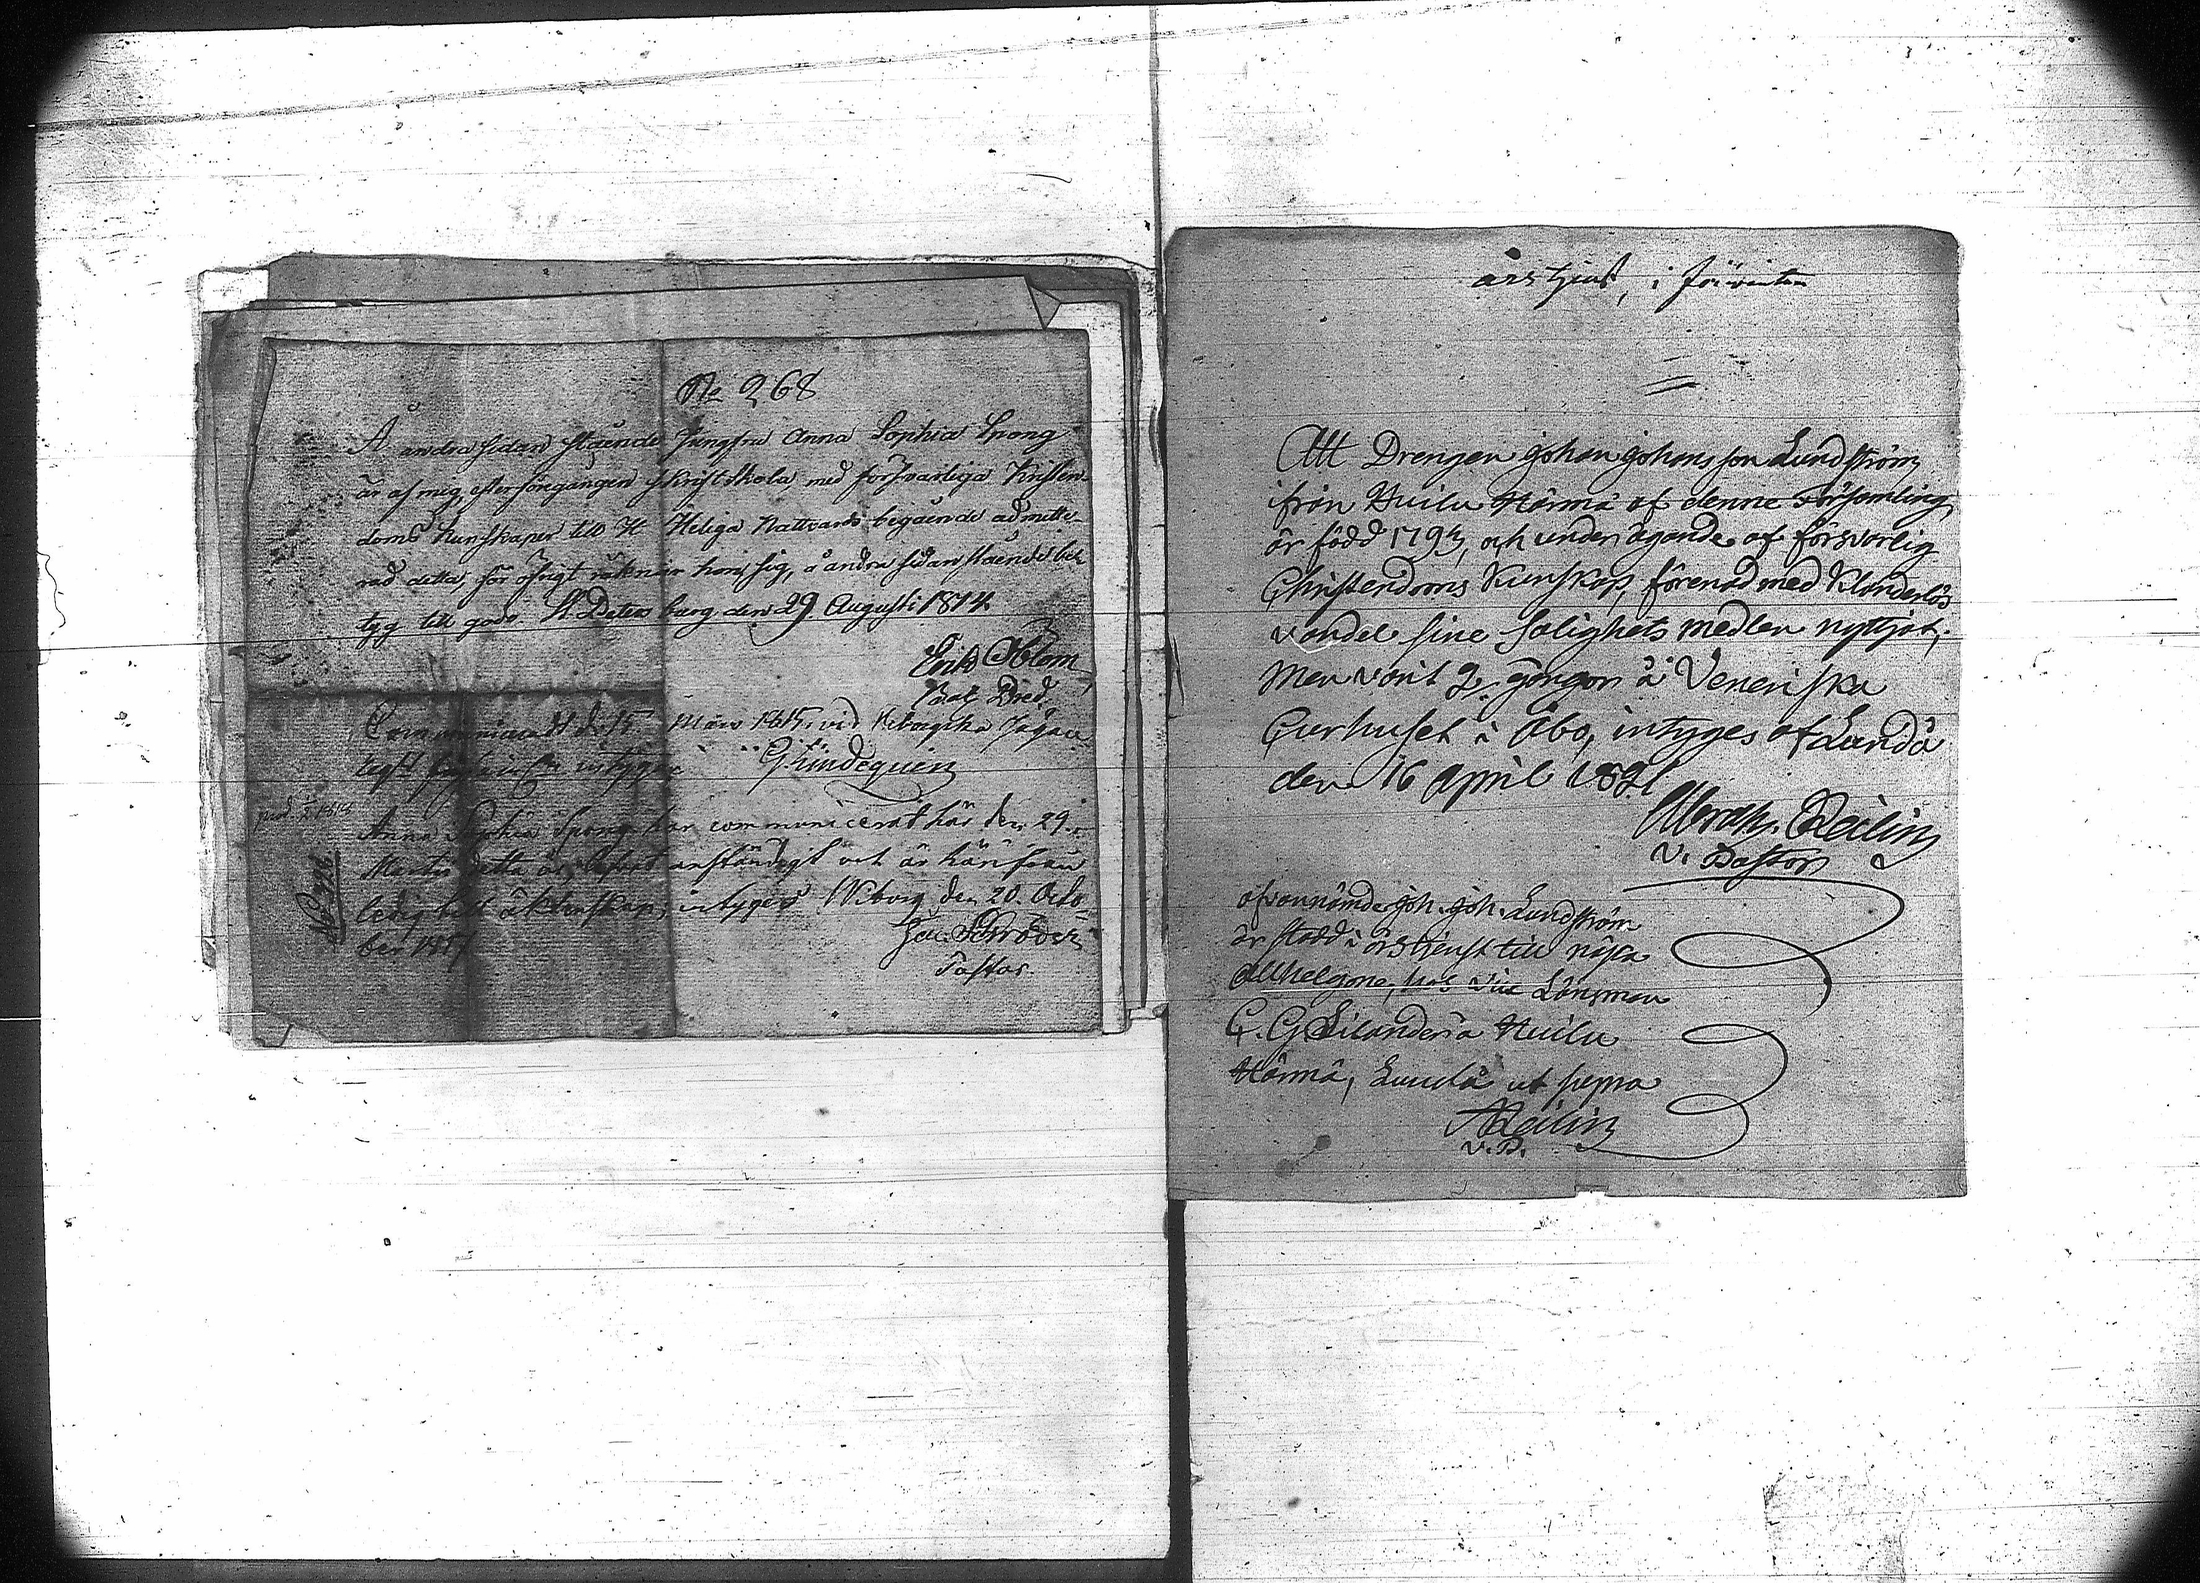 No 268
Å andra sidan stående Jungfru Anna Sophia Spong
är af mig, efter föregången skriftskola, med försvarliga Kristen-
doms kunskaper till H Heliga Nattvards begående admitte-
rad detta, för öfrigt räknar hon sig, å andra sidan stående bet
tyg till godo. St Petersburg den 29 Augusti 1814.
Erik
Communicerat d. 15 Mars 1815, vid Wiborgska
intygar G Lindequist
Anna Sophia Spong har communicerat här den 29.
Martii detta år, anständigt och är härifrån
ledig till äktenskap, intygas Wiborg den 20. Octo-
ber 1817
Schröder
Pastor.
års tjenst, i
Att Drengen Johan Johansson Lundström
ifrån Huilu Härmä af denne Församling
är född 179, och under ägande af försvarlig
Christendoms Kunskap, förenad med Klanderlös
vandel sine salighets medlen nyttjat;
Men varit 2 gångor å Veneriska
Curhuset i Åbo, intyges af Lundå
den 16 April 1821
Abrah. Reilin
V. Pastor
ofvannämde Joh. Joh. Lundström
är stadd i årstjenst till näSta
Allhelgone, hos vice Länsman
C. G. Silander å Huilu
Härmä, Lundå ut supra
AReilin
V.P.